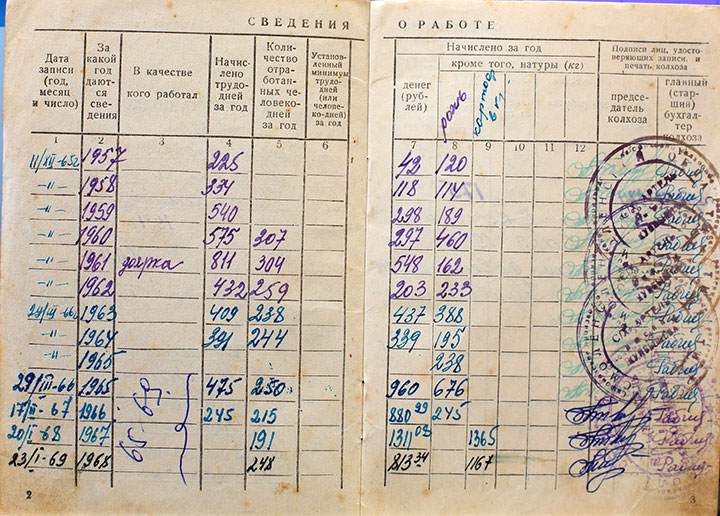 СВЕДЕНИЯ О РАБОТЕ
Дата записи (год, месяц и число)
За какой год даются сведения
В качестве кого работал
Начислено трудодней за год
Количество отработанных человекодней за год
Установленный минимум трудодней (или человеко-дней) за год
Начислено за год
денег (рублей)
кроме того, натуры (кг)
рожь
картоф
Подписи лиц, удостоверяющих записи, и печать колхоза
председатель колхоза
главный (старший) бухгалтер колхоза
1 2 3 4 5 6 7 8 9 10 11 12
1957 225 42 120
-"- 1958 334 118 114
-"- 1959 540 298 189
-"- 1960 575 307 297 460
-"- 1961 доярка 811 304 548 162
-"- 1962 432 259 203 233
1963 409 238 437 388
-"- 1964 391 244 339 195
-"- 1965 238
29/III-66 1965 475 250 960 676
17/II-67 1966 245 215 880 99 245
20/I-68 1967 191 1311 08 1365
23/I-69 1968 248 813 34 1167
2 3